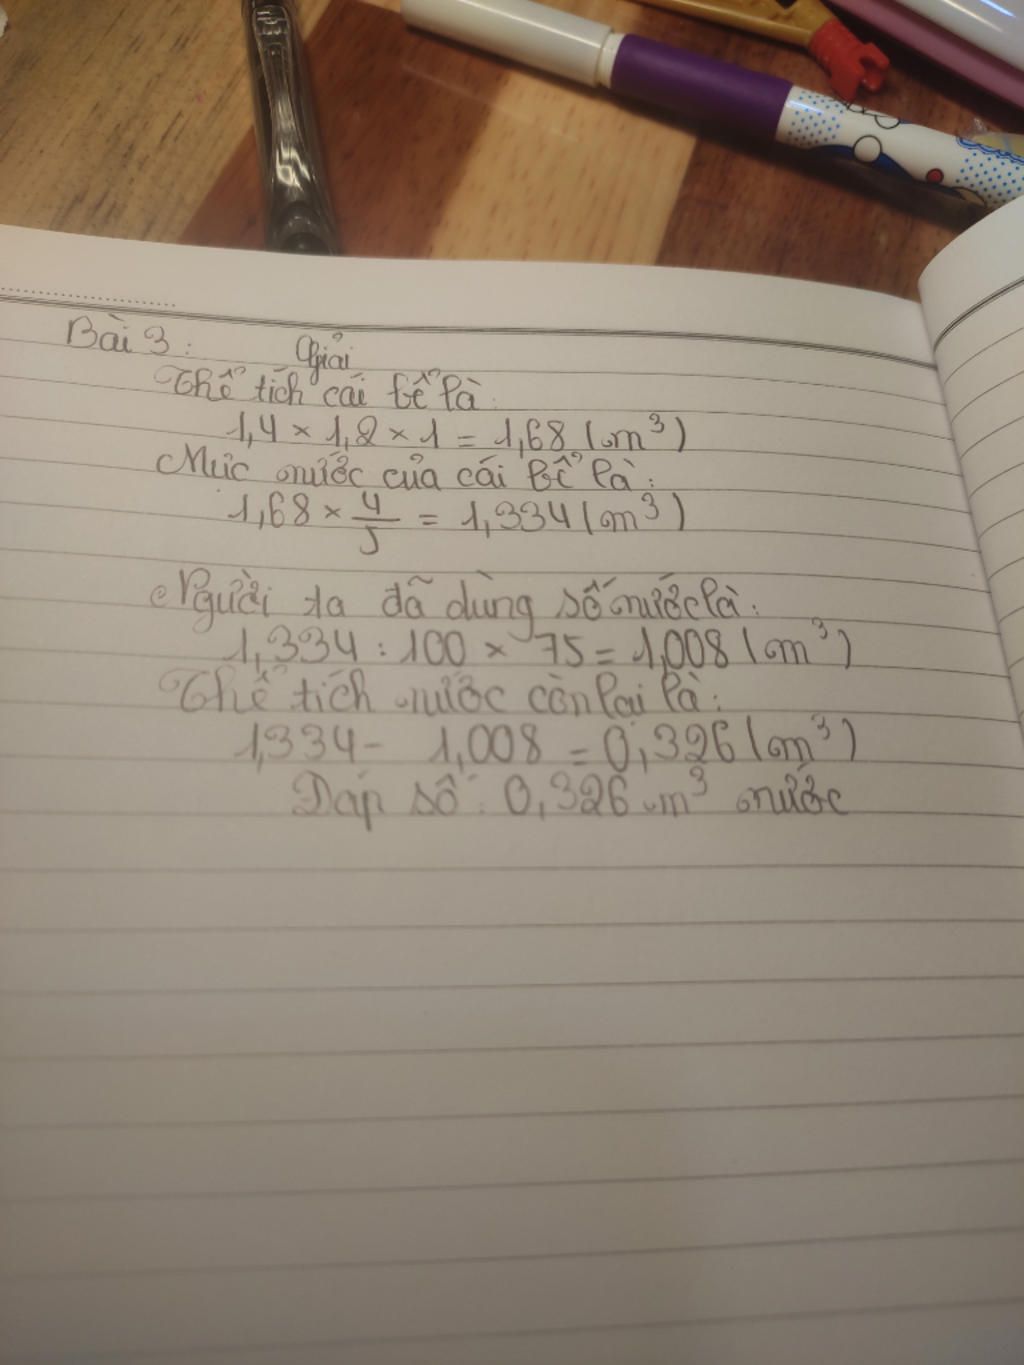 Bài 3: Giải
Thể tích cái bể là:
1,4 × 1,2 × 1 = 1,68 (m³)
Mưc nước của cái bể là:
1,68 × 4/5 = 1,334 (m³)
Người ta đã dùng số nước là:
1,334 : 100 × 75 = 1,008 (m³)
Thể tích nước còn lại là:
1,334 - 1,008 = 0,326 (m³)
Đáp số: 0,326 m³ nước